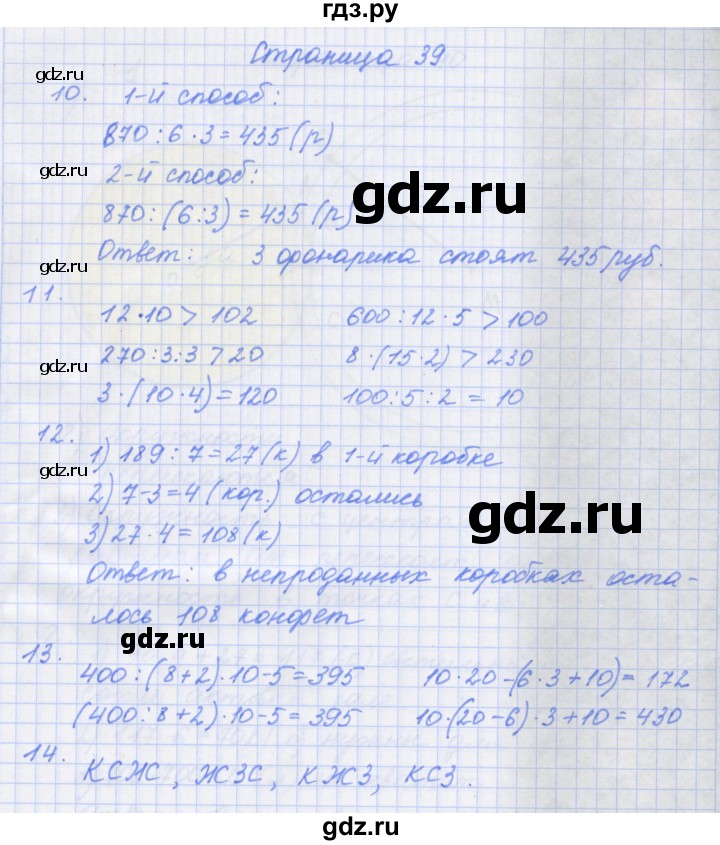 гдз.ру
Страница 39
gdz.ru
10. 1-й способ:
870:6·3=435(р)
gdz.ru
2-й способ:
gdz.ru
870:(6:3)=435(р)
gdz.ru
Ответ: 3 фонарика стоят 435 руб.
11.
12·10>102 600:12·5>100
gdz.ru
270:3:3>20 8·(15·2)>230
3·(10·4)=120 100:5:2=10
12.
1) 189:7=27(к) в 1-й коробке
gdz.ru
2) 7-3=4(кор.) остались
gdz.ru
3) 27·4=108(к)
Ответ: в непроданных коробках оста-
лось 108 конфет
gdz.ru
13.
400:(8+2)·10-5=395 10·20-(6·3+10)=172
(400:8+2)·10-5=395 10·(20-6)·3+10=430
14.
КСЖС, ЖЗС, КЖЗ, КСЗ.
gdz.ru
gdz.ru